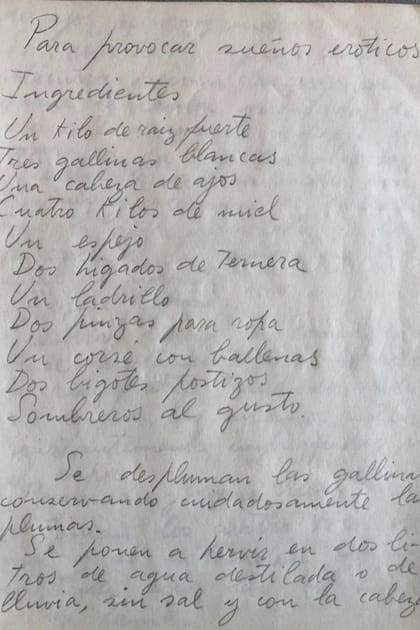 Para provocar sueños eroticos
Ingredientes
Un kilo de raiz fuerte
Tres gallinas blancas
Una cabeza de ajos
Cuatro kilos de miel
Un espejo
Dos higados de Ternera
Un ladrillo
Dos pinzas para ropa
Un corsé con ballenas
Dos bigotes postizos
Sombreros al gusto.
Se despluman las gallina
conservando cuidadosamente la
plumas.
Se ponen a hervir en dos li-
tros de agua destilada o de
lluvia, sin sal y con la cabeza